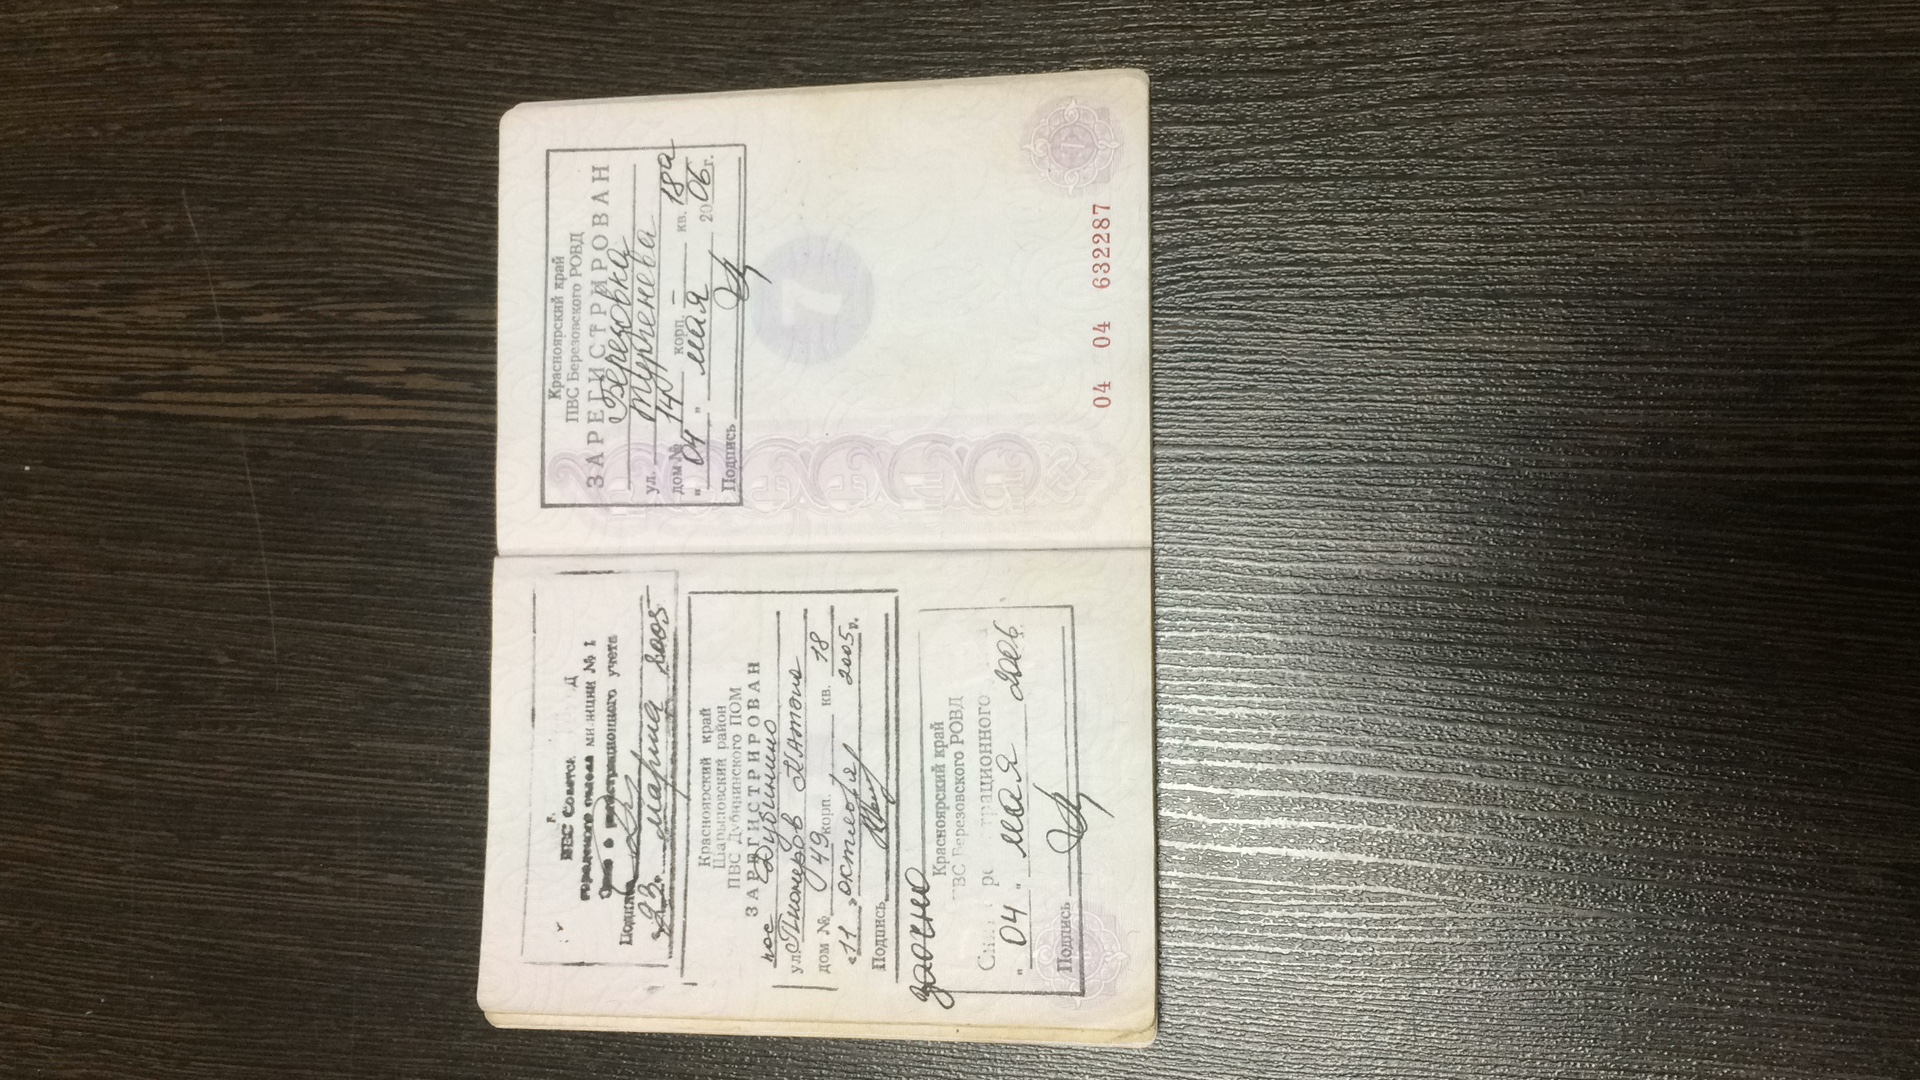 г.
ПВС Советск Д
городского отдела милиции № 1
Снят с регистрационного учета
Подпись
"23" марта 2005
Красноярский край
Шарыповский район
ПВС Дубининского ПОМ
ЗАРЕГИСТРИРОВАН
пос Дубинино
ул. Пионеров КАТЭКа
дом № 49 корп. кв. 18
"11" октября 2005 г.
Подпись
заочно
Красноярский край
ПВС Березовского РОВД
Снят с регистрационного
"04" мая 2006 г.
Подпись
Красноярский край
ПВС Березовского РОВД
ЗАРЕГИСТРИРОВАН
Березовка
ул. Тургенева
дом № 14 корп. – кв. 18а
"04" мая 2006 г.
Подпись
7
04 04 632287